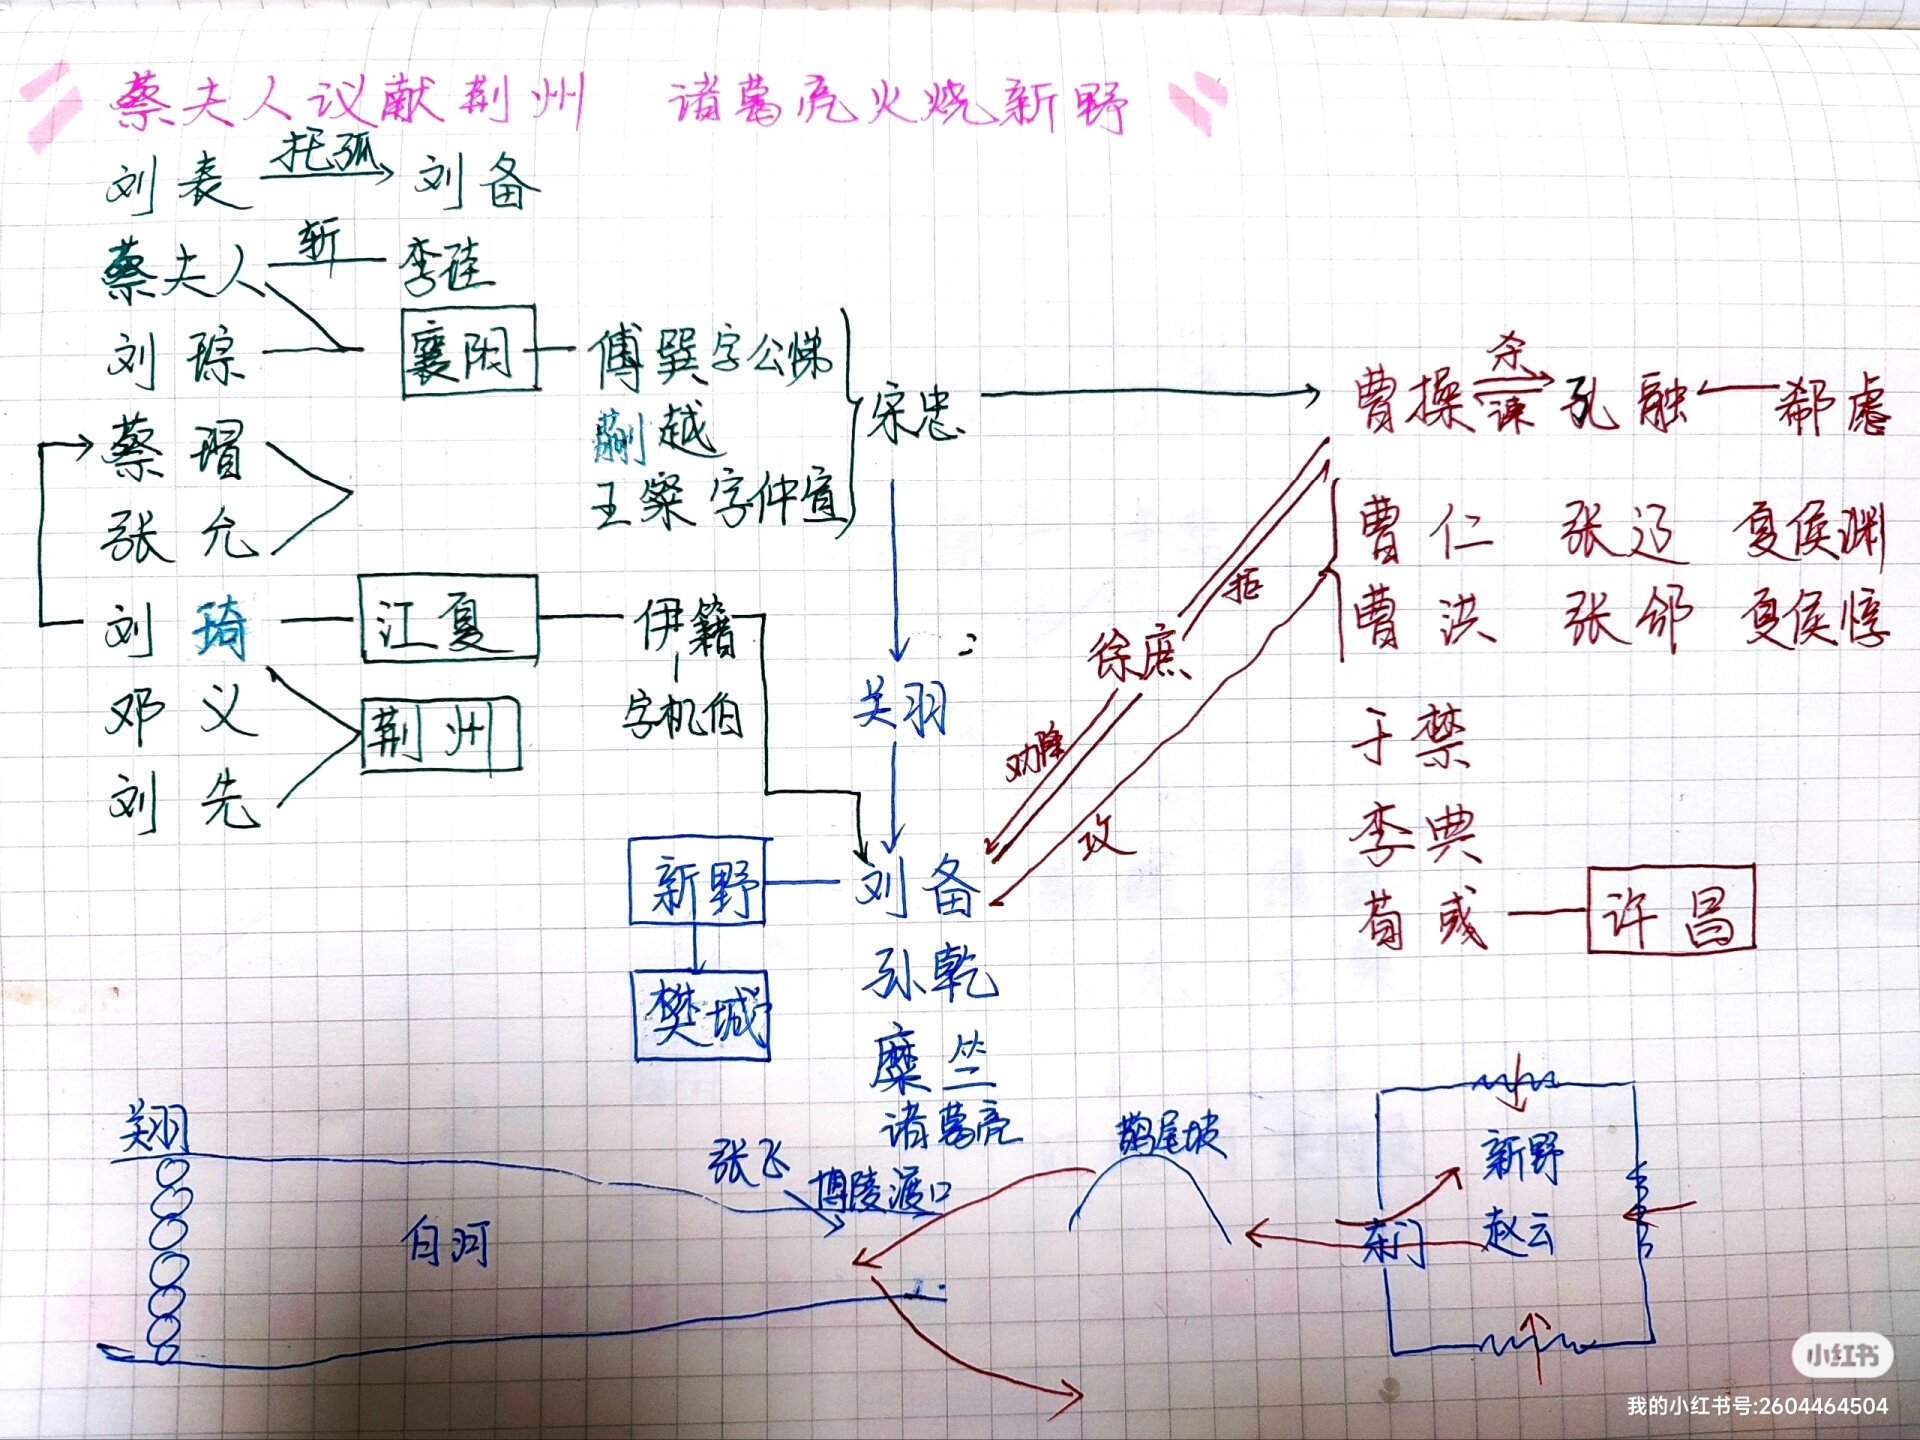 蔡夫人议献荆州 诸葛亮火烧新野
刘表 托孤 刘备
蔡夫人 斩 李珪
刘琮 襄阳 傅巽字公悌
蒯越
王粲字仲宣
宋忠
蔡瑁
张允
刘琦 江夏 伊籍
字机伯
邓义 荆州
刘先
曹操 杀 谏 孔融 郗虑
曹仁 张辽 夏侯渊
曹洪 张郃 夏侯惇
于禁
李典
荀彧 许昌
徐庶
拒
劝降
攻
关羽
新野 刘备
樊城 孙乾
糜竺
诸葛亮
关羽
白河
张飞 博陵渡口
鹊尾坡
新野
东门 赵云
小红书
我的小红书号:2604464504